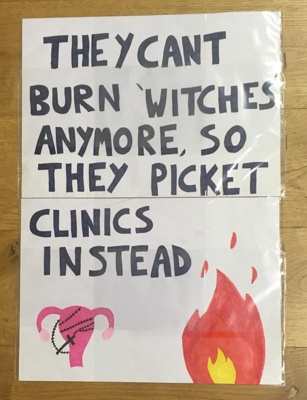 THEY CANT
BURN 'WITCHES
ANYMORE, SO
THEY PICKET
CLINICS
INSTEAD